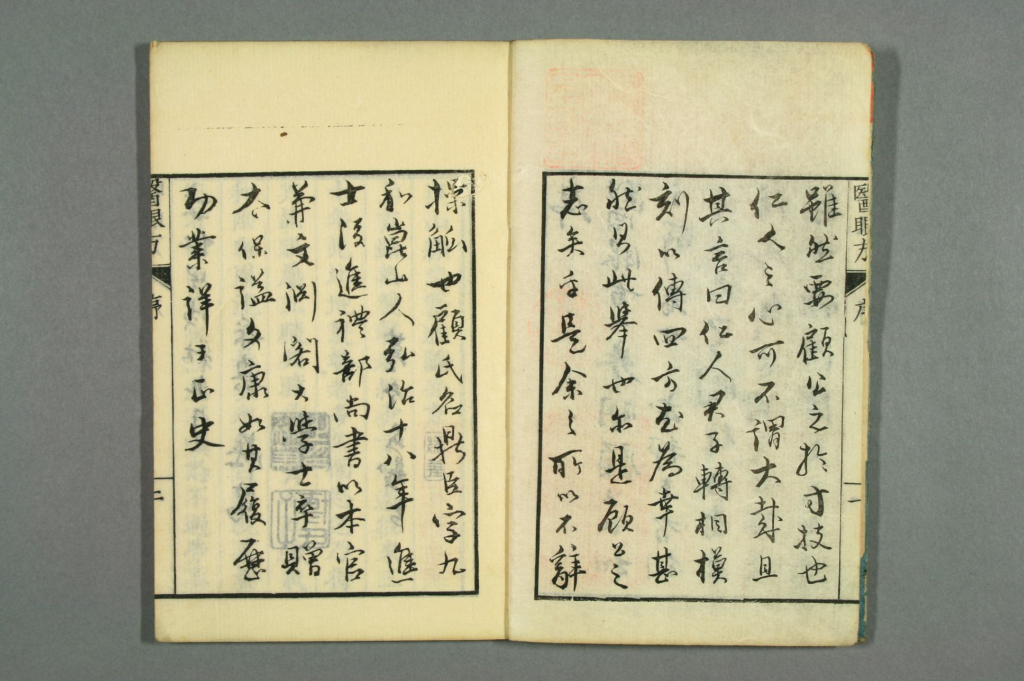 雖然要顧公之於方技也
仁人之心可不謂大哉且
其言曰仁人君子轉相模
刻以傳四方尤為幸甚
然則此舉也亦是顧公之
志矣乎是余之所以不辭
操觚也顧氏名鼎臣字九
和崑山人弘治十八年進
士後進禮部尚書以本官
兼文淵閣大學士卒贈
太保謚文康如其履歷
功業詳于正史
醫眼方
序
一
醫眼方
序
二